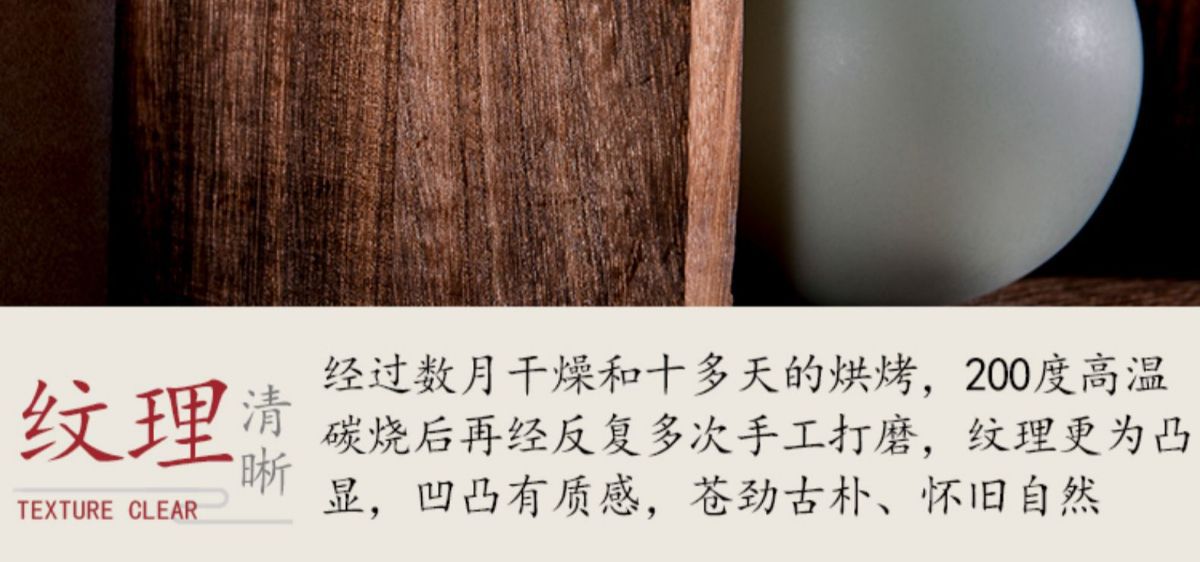 纹理
清晰
TEXTURE CLEAR
经过数月干燥和十多天的烘烤，200度高温
碳烧后再经反复多次手工打磨，纹理更为凸
显，凹凸有质感，苍劲古朴、怀旧自然